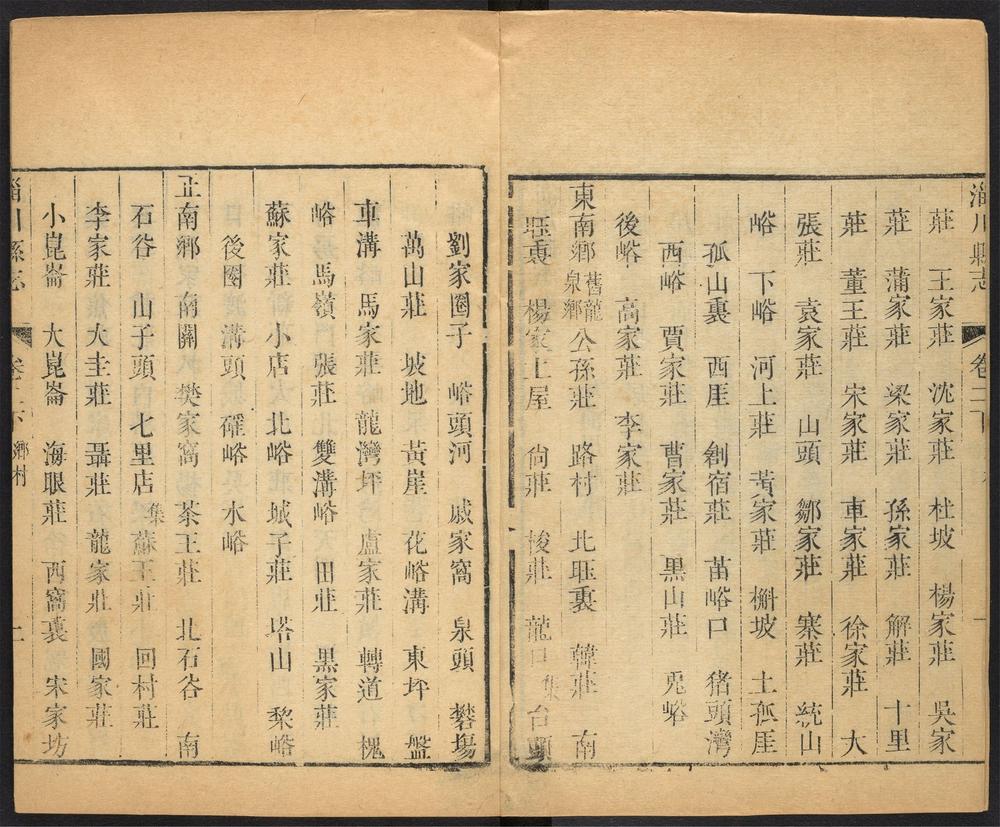 淄川縣志 卷二下
莊 王家莊 沈家莊 杜坡 楊家莊 吳家
莊 蒲家莊 梁家莊 孫家莊 解莊 十里
莊 董王莊 宋家莊 車家莊 徐家莊 大
張莊 袁家莊 山頭 鄒家莊 寨莊 統山
峪 下峪 河上莊 黃家莊 槲坡 土孤厓
孤山裏 西厓 創宿莊 苗峪口 猪頭灣
西峪 賈家莊 曹家莊 黑山莊 兎峪
後峪 高家莊 李家莊
東南鄉舊龍泉鄉 公孫莊 路村 北瓸裏 韓莊 南
瓸裏 楊家土屋 尙莊 梭莊 龍口集 台頭
劉家圈子 峪頭河 戚家窩 泉頭 礬塲
萬山莊 坡地 黃崖 花峪溝 東坪 盤
車溝 馬家莊 龍灣坪 盧家莊 轉道 槐
峪 馬嶺 張莊 雙溝峪 田莊 黑家莊
蘇家莊 小店 北峪 城子莊 塔山 黎峪
後圈 溝頭 磪峪 水峪
正南鄉 南關 樊家窩 茶王莊 北石谷 南
石谷 山子頭 七里店集 蘇王莊 回村莊
李家莊 大圭莊 聶莊 龍家莊 國家莊
小崑崙 大崑崙 海眼莊 西窩裏 宋家坊
淄川縣志 卷二下 鄉村